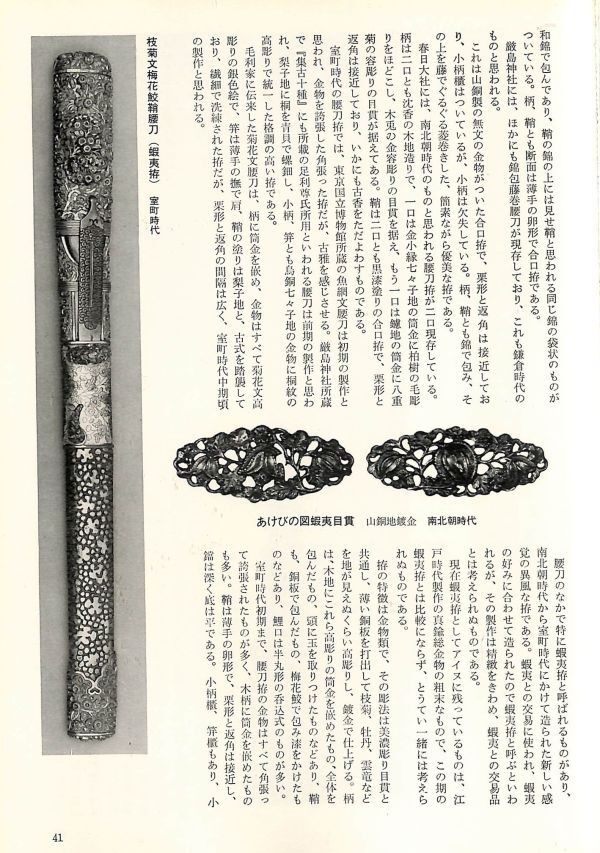 和錦で包んであり、鞘の錦の上には見せ鞘と思われる同じ錦の袋状のものが
ついている。柄、鞘とも断面は薄手の卵形で合口拵である。
厳島神社には、ほかにも錦包藤巻腰刀が現存しており、これも鎌倉時代の
ものと思われる。
これは山銅製の無文の金物がついた合口拵で、栗形と返角は接近してお
り、小柄櫃はついているが、小柄は欠失している。柄、鞘とも錦で包み、そ
の上を藤でぐるぐる菱巻きした、簡素ながら優美な拵である。
春日大社には、南北朝時代のものと思われる腰刀拵が二口現存している。
柄は二口とも沈香の木地造りで、一口は金小縁七々子地の筒金に柏樹の毛彫
りをほどこし、木兎の金容彫りの目貫を据え、もう一口は鑢地の筒金に八重
菊の容彫りの目貫が据えてある。鞘は二口とも黒漆塗りの合口拵で、栗形と
返角は接近しており、いかにも古香をただよわすものである。
室町時代の腰刀拵では、東京国立博物館所蔵の魚綱文腰刀は初期の製作と
思われ、金物を誇張した角張った拵だが、古雅を感じさせる。厳島神社所蔵
で『集古十種』にも所載の足利尊氏所用といわれる腰刀は前期の製作と思わ
れ、梨子地に桐を青貝で螺鈿し、小柄、笄とも烏銅七々子地の金物に桐紋の
高彫りで統一した格調の高い拵である。
毛利家に伝来した菊花文腰刀は、柄に筒金を嵌め、金物はすべて菊花文高
彫りの銀色絵で、笄は薄手の撫で肩、鞘の塗りは梨子地と、古式を踏襲して
おり、繊細で洗練された拵だが、栗形と返角の間隔は広く、室町時代中期頃
の製作と思われる。
枝菊文梅花鮫鞘腰刀（蝦夷拵）　室町時代
あけびの図蝦夷目貫　山銅地鍍金　南北朝時代
腰刀のなかで特に蝦夷拵と呼ばれるものがあり、
南北朝時代から室町時代にかけて造られた新しい感
覚の異風な拵である。蝦夷との交易に使われ、蝦夷
の好みに合わせて造られたので蝦夷拵と呼ぶといわ
れるが、その製作は精緻をきわめ、蝦夷との交易品
とは考えられぬものである。
現在蝦夷拵としてアイヌに残っているものは、江
戸時代製作の真鍮総金物の粗末なもので、この期の
蝦夷拵とは比較にならず、とうてい一緒には考えら
れぬものである。
拵の特徴は金物類で、その彫法は美濃彫り目貫と
共通し、薄い銅板を打出して枝菊、牡丹、雲竜など
を地が見えぬくらい高彫りし、鍍金で仕上げる。柄
は、木地にこれら高彫りの筒金を嵌めたもの、全体を
包んだもの、頭に玉を取りつけたものなどあり、鞘
も、銅板で包んだもの、梅花鮫で包み漆をかけたも
のなどあり、鯉口は半丸形の呑込式のものが多い。
室町時代初期まで、腰刀拵の金物はすべて角張っ
て誇張されたものが多く、木柄に筒金を嵌めたもの
も多い。鞘は薄手の卵形で、栗形と返角は接近し、
鐺は深く底は平である。小柄櫃、笄櫃もあり、小
41